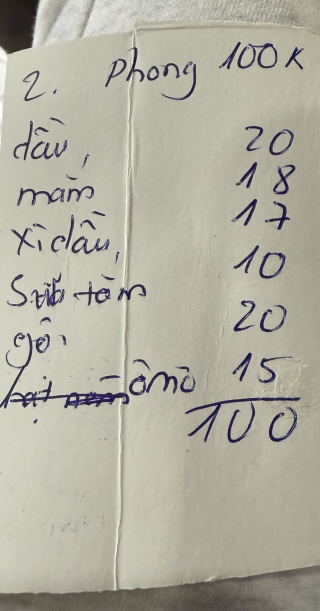 2. Phong 100K
dầu, 20
mắm 18
xì dầu, 17
Sữa tắm 10
gội 20
ômô 15
100